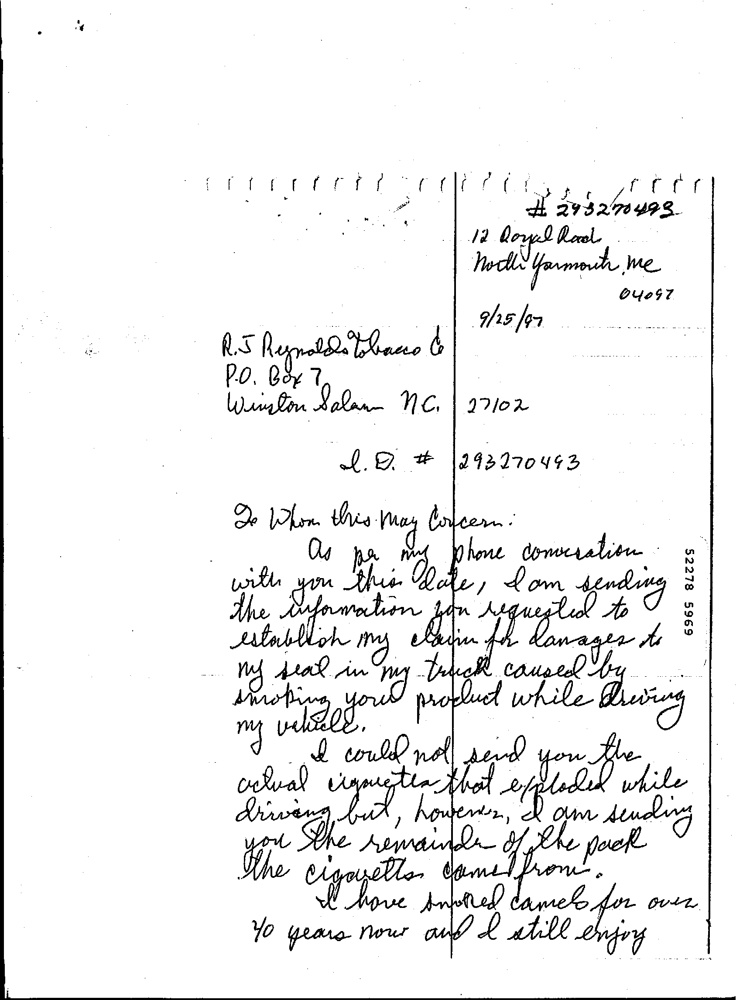 # 293270493
12 Royal Road
North Yarmouth, Me
04097
9/25/97
R.J Reynolds Tobacco Co
P.O. Box 7
Winston Salam N.C. 27102
I.D. # 293270493
To Whom this May Concern:
As per my phone conversation
with you this date, I am sending
the information you requested to
establish my claim for damages to
my seat in my truck caused by
smoking your product while driving
my vehicle.
I could not send you the
actual cigarettes that exploded while
driving but, however, I am sending
you the remainder of the pack
the cigaretts came from.
I have smoked camels for over
40 years now and I still enjoy
52278 5969